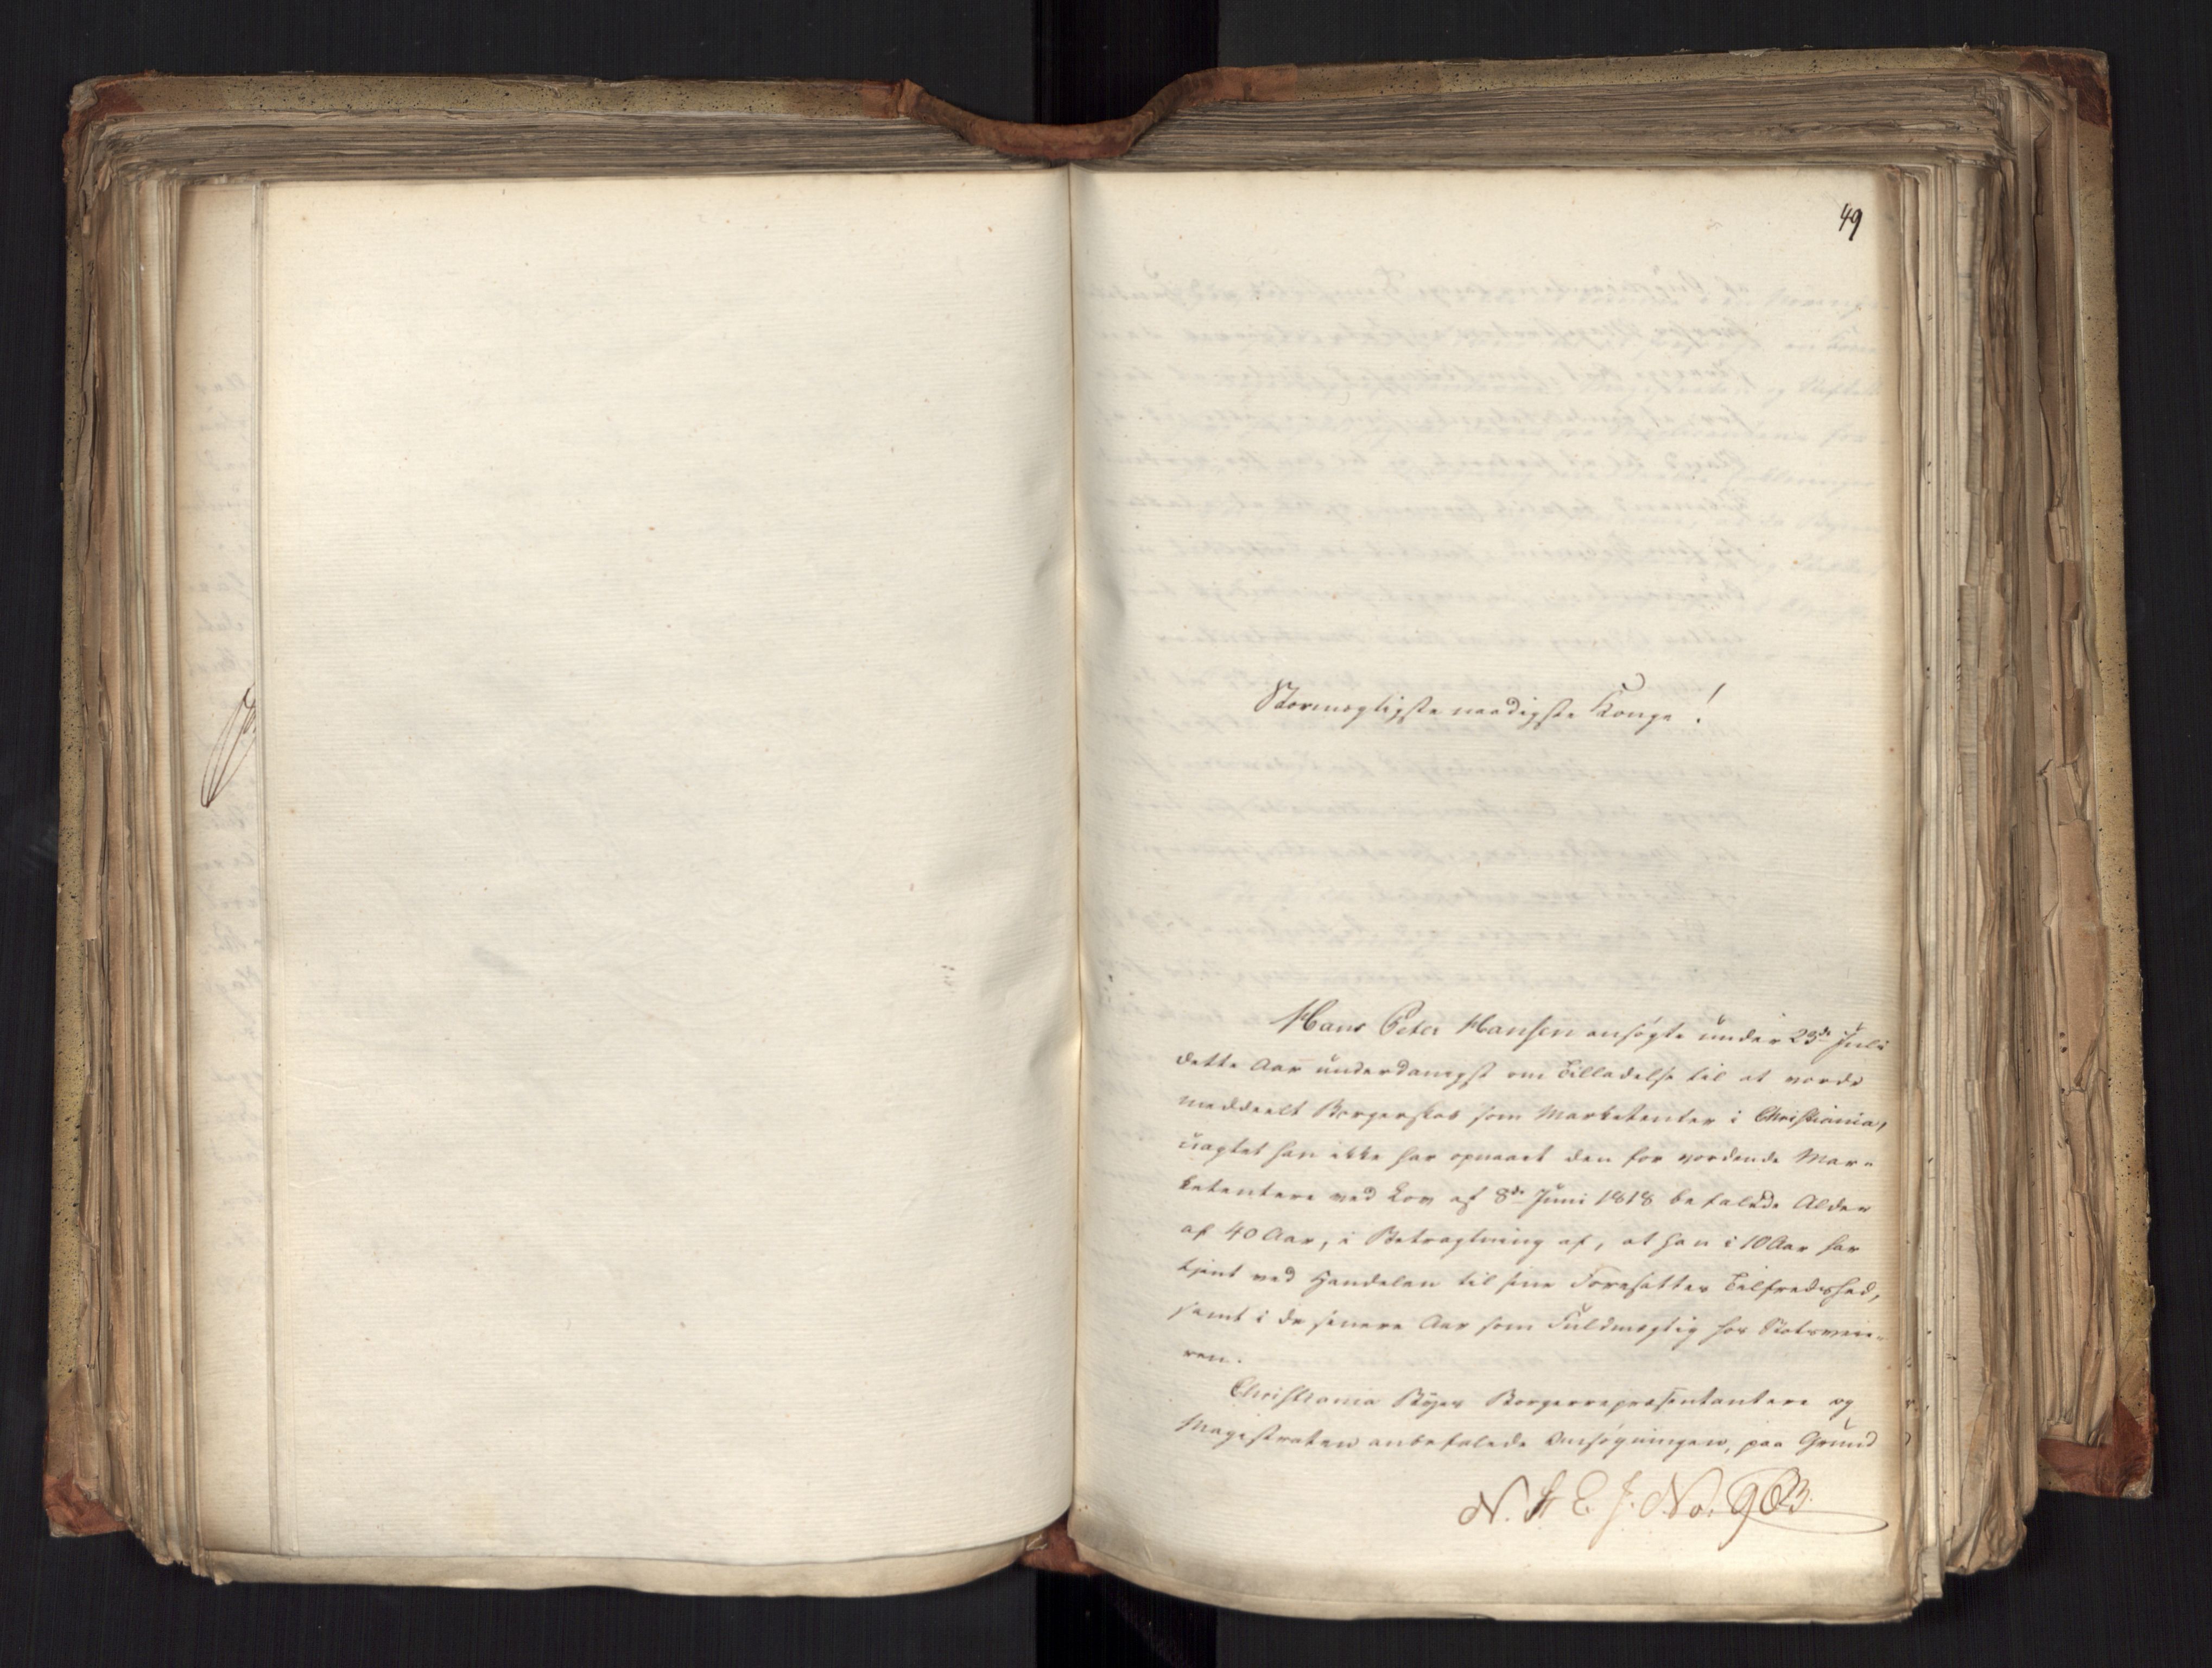 49
Stormægtigste naadigste Konge!
Hans Peter Hansen ansøgte under 23de Juli
dette Aar underdanigst om Tilladelse til at vorde
meddeelt Borgerskab som Marketenter i Christiania,
uagtet han ikke har opnaaet den for vordende Mar-
ketentere ved Lov af 8de Juni 1818 befalede Alder
af 40 Aar, i Betragtning af, at han i 10 Aar har
tjent ved Handelen til sine Foresattes Tilfredshed,
samt i de senere Aar som Fuldmægtig hos
Christiania Byes Borgerrepræsentantere og
Magistraten anbefalede Ansøgningen, paa Grund